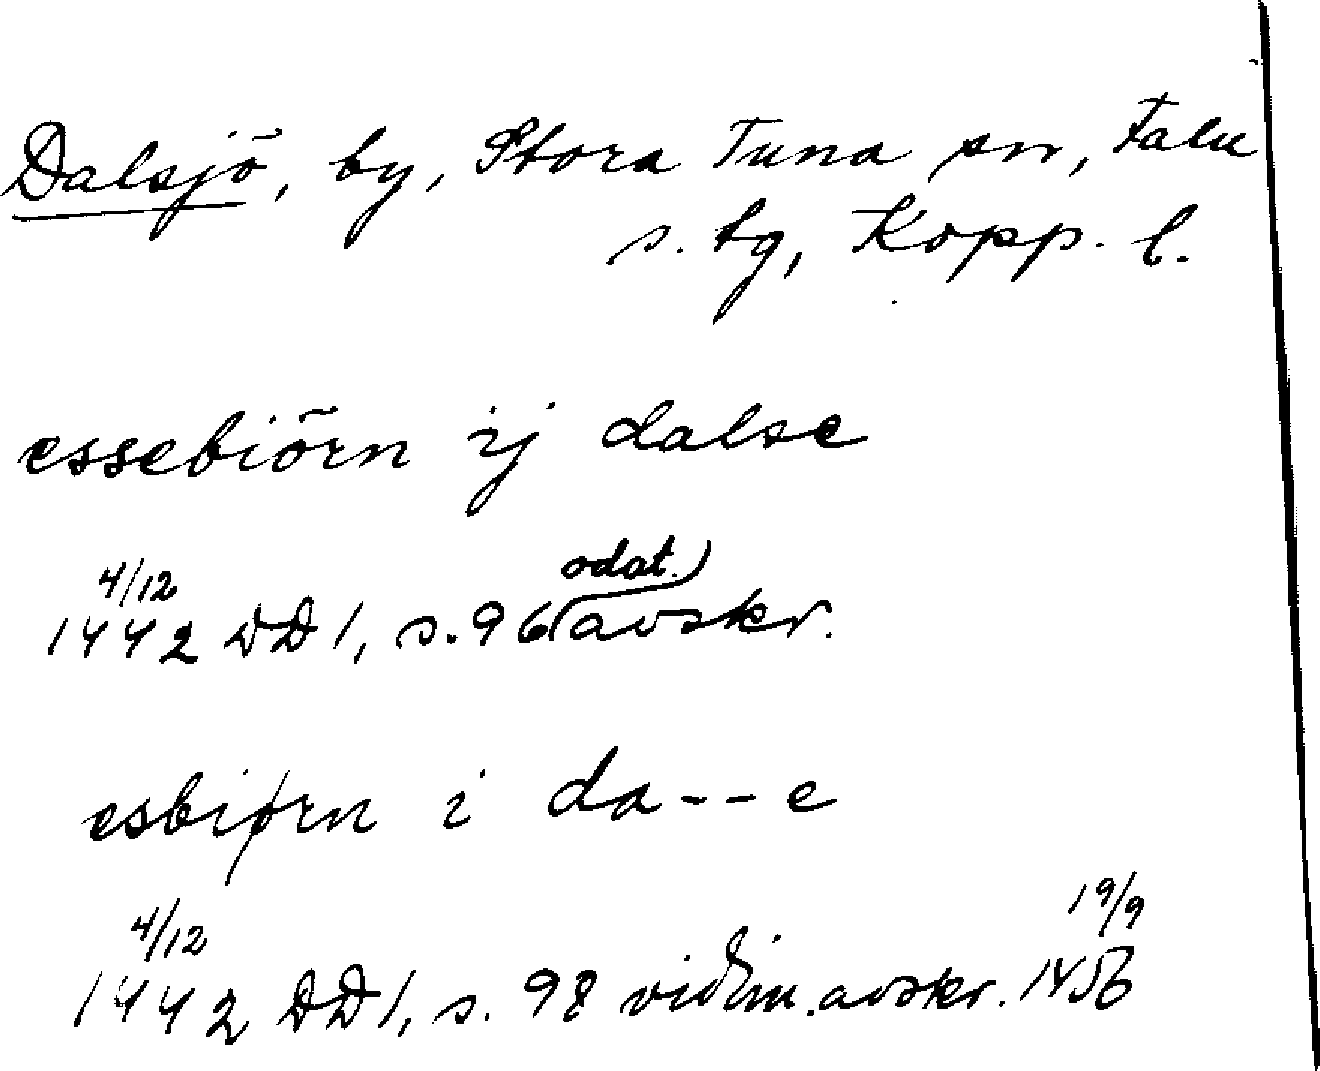 Dalsjö, by, Stora Tuna sn, Falu
s. tg, Kopp. l.
essebiörn ij dalse
4/12 odat.
1442 DD 1, s. 96 avskr.
esbiørn i da--e
4/12 19/9
1442 DD 1, s. 98 vidim. avskr. 1456